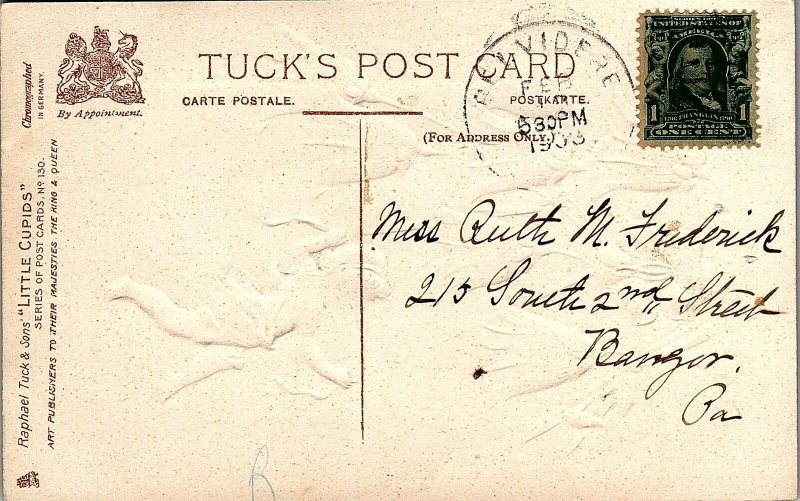 TUCK'S POST CARD
CARTE POSTALE.
POSTKARTE.
(FOR ADDRESS ONLY.)
Chromographed
IN GERMANY.
By Appointment.
Raphael Tuck & Sons' "LITTLE CUPIDS"
SERIES OF POST CARDS. Nº 130.
ART PUBLISHERS TO THEIR MAJESTIES THE KING & QUEEN
BELVIDERE
FEB
530PM
SERIES 1902
UNITED STATES OF
AMERICA
1 1
FRANKLIN
POSTAGE
ONE CENT
Miss Ruth M. Frederick
215 South 2nd Street
Bangor.
Pa